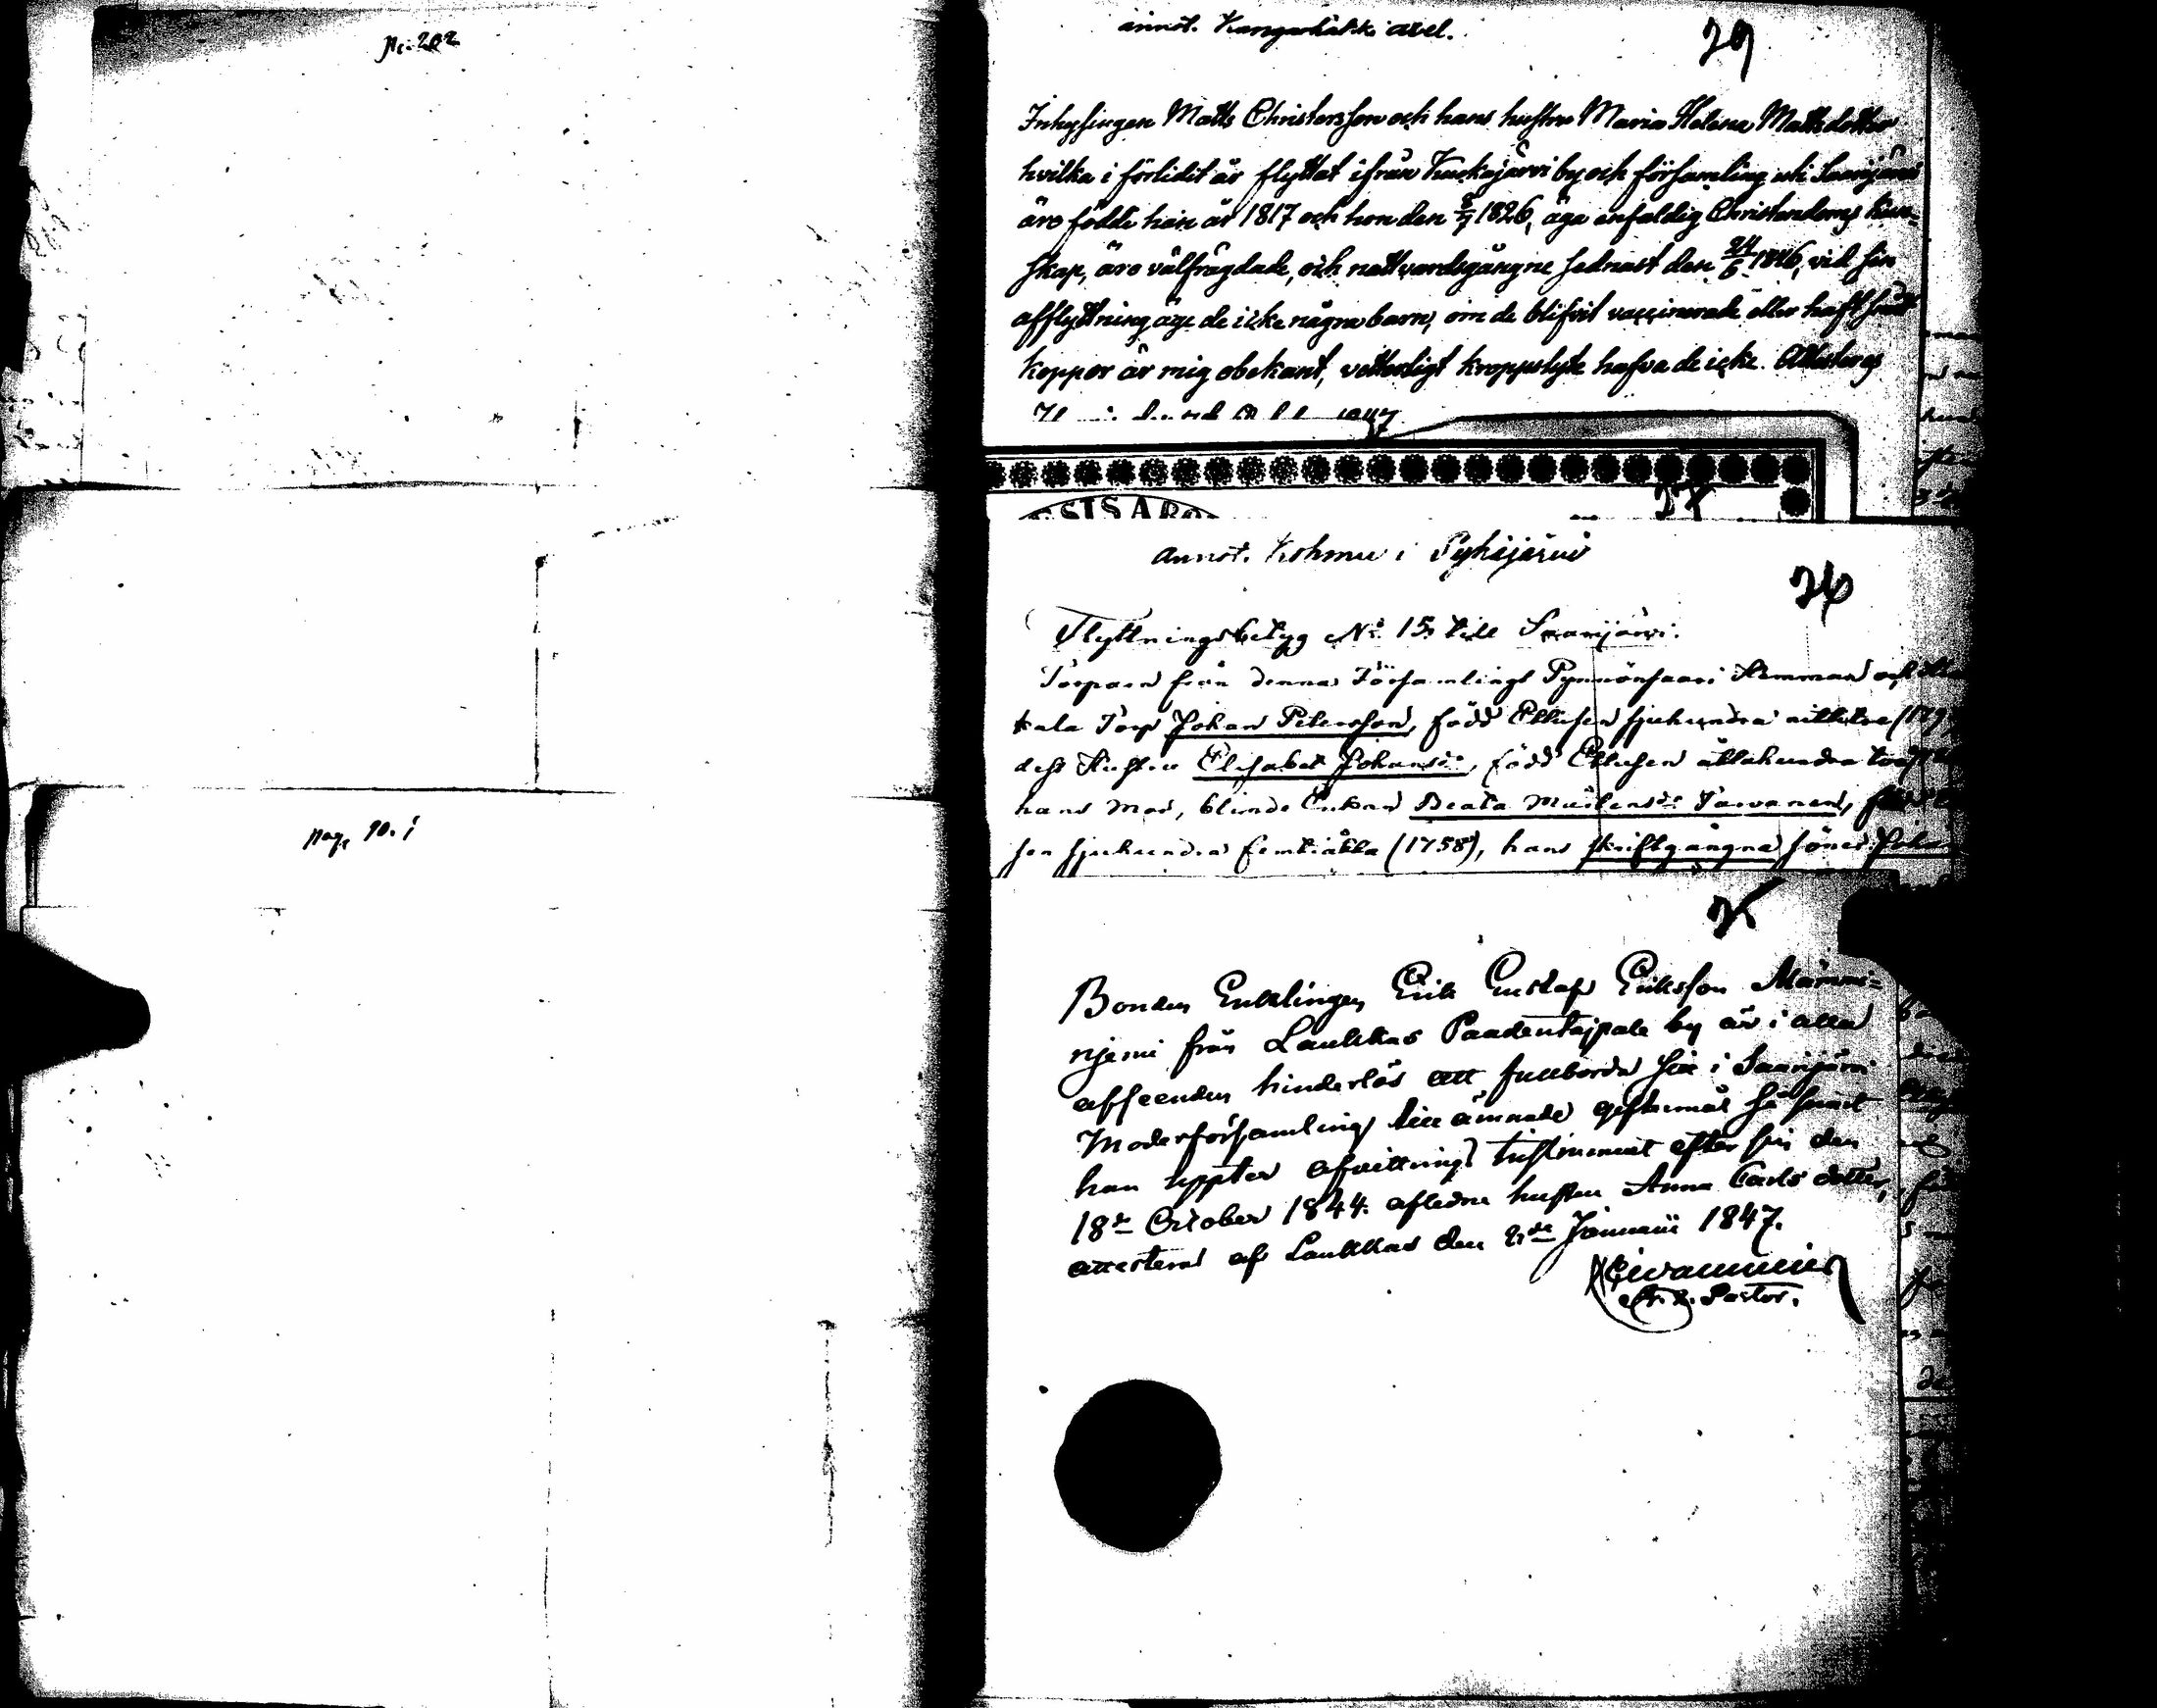 Pr. 202
pag. 90. i
annot. Kangashäkki avel.
29
Inhysingen Matts Christersson och hans hustru Maria Helena Mattsdotter
hvilka i förlidit år flyttat ifrån Kuckajärvi by och församling uti Saarijärvi
äro födde han år 1817 och hon den 8/7 1826, äga enfaldig Christendoms kun-
skap, äro välfrägdade, och nattvardsgångne sednast den 24/6 1846, vid sin
afflyttning äga de icke några barn, om de blifvit vaccinerade eller haft
koppor är mig obekant, vetterligt kroppslyte hafva de icke. Attesteras
annot. Kohmu i Pyhäjärvi
26
Flyttningsbetyg No. 15. till Saarijärvi.
Torparn från denna Församlings Pynnönsaari Hemman och
kala Torp Johan Petersson, född Ettusen sjuhundra nittitre (179
dess Hustru Elisabet Johansdr, född Ettusen åttahundra
hans Mor, blinde Enkan Beata Mårtensdr Tarvanen,
sen sjuhundra femtiåtta (1758), hans skriftgångna söner
25
Bonden Enklingen Erik Gustaf Eriksson Männi-
njemi från Laukkas Paadentajpale by är i alla
afseenden hinderlös att fullborda sin i Saarijärvi
Moderförsamling tillämnade giftermål så snart
han uppter afvittrings instrument efter sin den
18de October 1844. aflidne hustru Anna Carls dotter,
attesteras af Laukkas den 2de Januarii 1847.
Pastor.